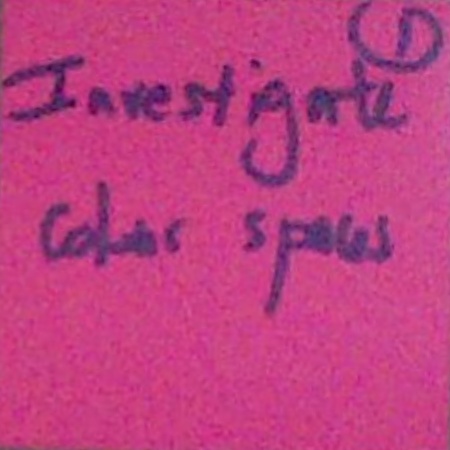 1
Investigate
Color spaces